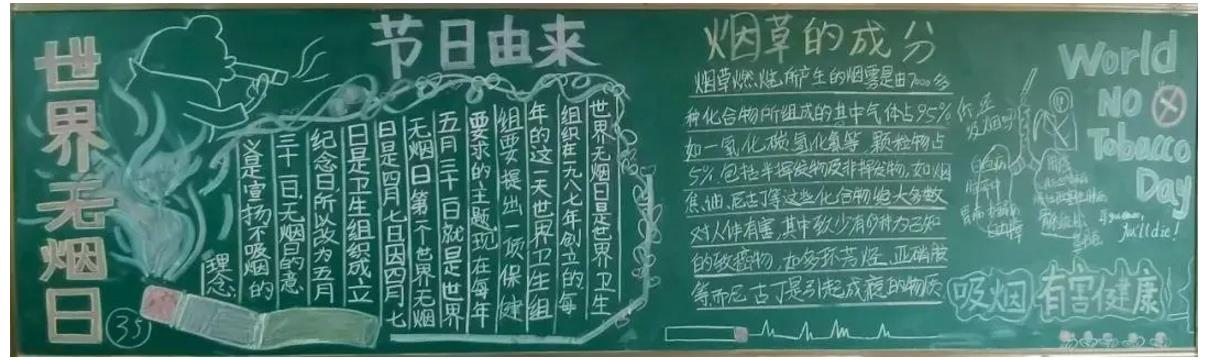 世界无烟日
35
节日由来
世界无烟日是世界卫生
组织在一九八七年创立的每
年的这一天世界卫生组
织要提出一项保健
要求的主题现在每年
五月三十一日就是世界
无烟日第一个世界无烟
日是四月七日因四月七
日是卫生组织成立
纪念日,所以改为五月
三十一日,无烟日的意
义是宣扬不吸烟的
理念
烟草的成分
烟草燃烧所产生的烟雾是由7000多
种化合物所组成的其中气体占95%
如一氧化碳氢化氰等,颗粒物占
5%包括半挥发物及非挥发物,如烟
焦油,尼古丁等这些化合物绝大多数
对人体有害,其中至少有69种为已知
的致癌物,如多环芳烃,亚硝胺
等而尼古丁是引起成瘾的物质
你还
吸烟吗
World
NO
Tobacco
Day
you'll die!
吸烟有害健康